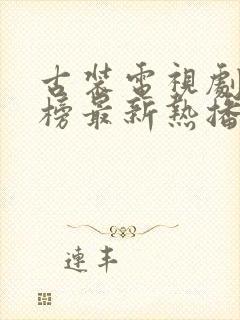 古裝電視劇
榜最新熱播
連丰